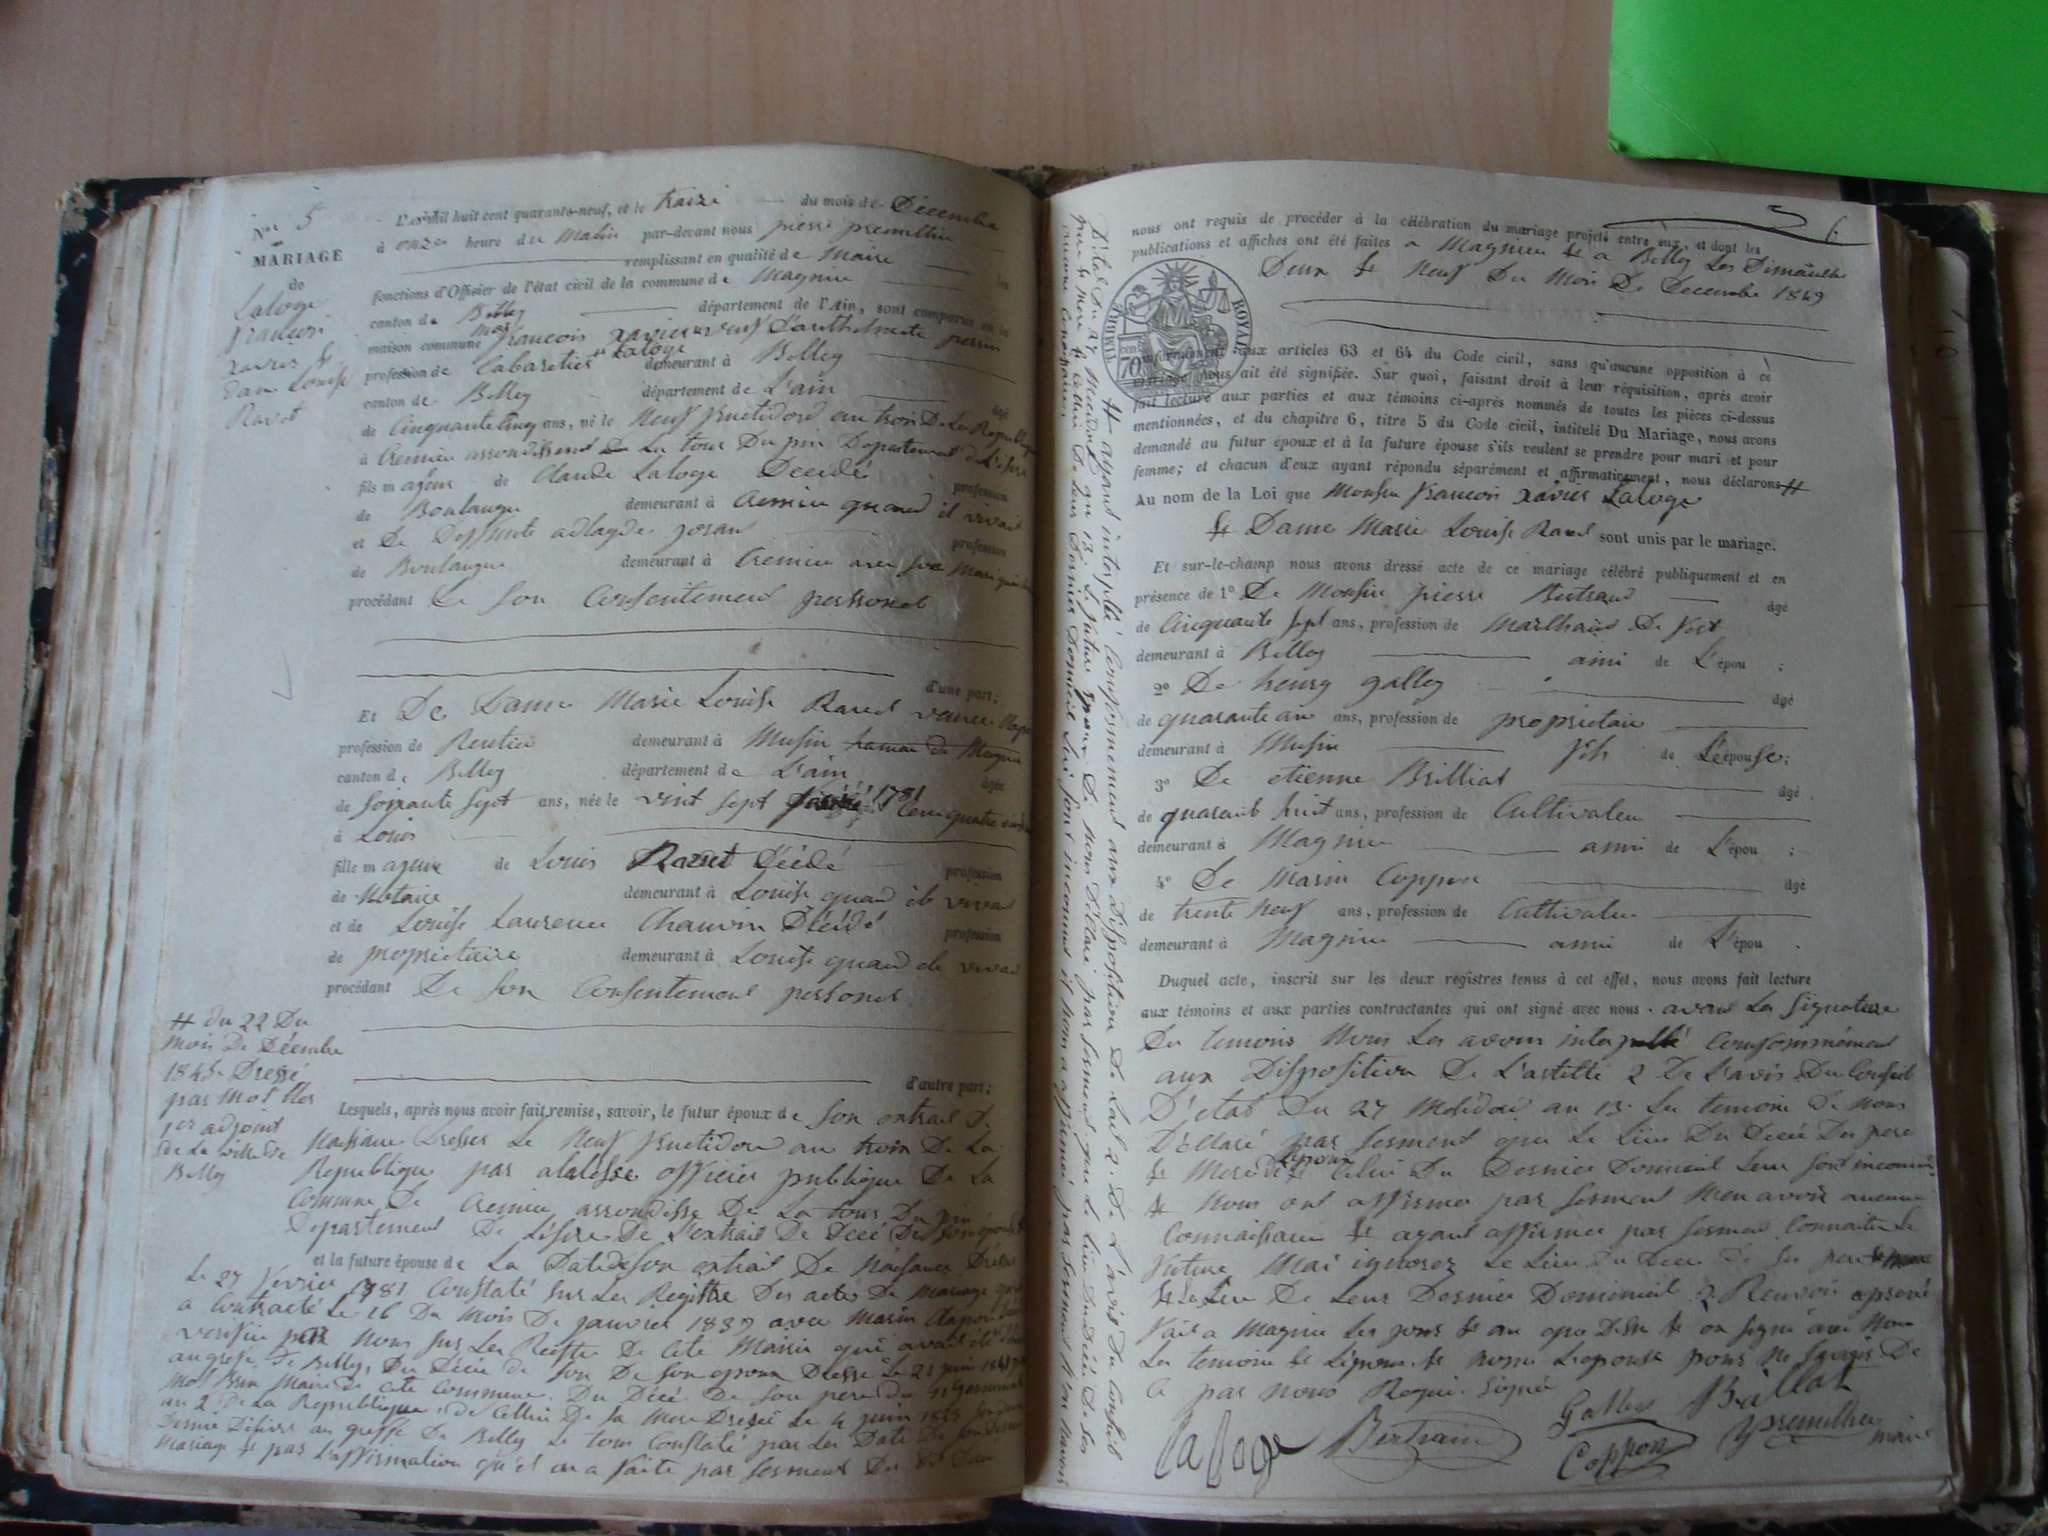 N° 5
MARIAGE
de
Laloge
françois
xavier &
Dame Louise
Ravet
L'an mil huit cent quarante-neuf, et le traize du mois de Décembre
à onze heure du Matin par-devant nous pierre premillieu
remplissant en qualité de Maire les
fonctions d'Officier de l'état civil de la commune de Magnieu
canton de Belley département de l'Ain, sont comparus en la
maison commune françois xavier veuf d'anthelmette perrin
Laloge
profession de Cabaretier demeurant à Belley
canton de Belley département de L'ain âgé
de Cinquante Cinq ans, né le Neuf fructidord an trois De La Republique
à Cremieu arrondissement de La tour Du pin Departement de L'isere
fils majeur de Claude Laloge Decedé profession
de Boulanger demeurant à Cremieu quand il vivait
et De Deffunte adlayde joran profession
de Boulangere demeurant à Cremieu avec son Mari
procédant De son Consentement personel
d'une part;
Et De Dame Marie Louise Ravet veuve
profession de Rentiere demeurant à Musin hamau de Magnieu
canton de Belley département de L'ain âgée
de Soixante Sept ans, née le vint sept 1781
à Louis
fille majeure de Louis Ravet Décédé profession
de Notaire demeurant à Louise quand il vivai
et de Louise Laurence Chauvin Décédé profession
de proprietaire demeurant à Louise quand ele vivai
procédant De son Consentement personel
d'autre part;
# du 22 Du
mois De Décembre
1845 Dressé
par Mol
1er adjoint
de La ville de
Belley
Lesquels, après nous avoir fait remise, savoir, le futur époux de son extrait De
Naissance Dresser Le Neuf fructidor an trois De La
Republique par officier publique De La
Commune De Cremieu arrondisse De La tour Du pin
Departement De L'isère De L'extrait De Décé De son épouse
et la future épouse de La Date de son extrait De Naissance Dresser
Le 27 fevrier 1781 Constaté sur Les Registre Des actes De Mariage
a Contracté Le 16 Du Mois De janvier 1837 avec Marin
verifier par Nous sur Les Reistre De cete Mairie qui avait été
au grefe de Belley, Du Décée de son De son epoux Dressé Le 21 juin
Maire de cete Commune. Du Décé De son pere
an 2 De La Republique, de Cellui De sa Mere Dressé Le 4 juin
au greffe De Belley Le tout Constaté par Les Date De son
Mariage & par L'affirmation qu'el en a faite par serment
6
nous ont requis de procéder à la célébration du mariage projeté entre eux, et dont les
publications et affiches ont été faites à Magnieu & a Belley Les Dimanche
Deux & Neuf Du Mois De Decembre 1849
TIMBRE ROYAL
70
conformément aux articles 63 et 64 du Code civil, sans qu'aucune opposition à ce
mariage nous ait été signifiée. Sur quoi, faisant droit à leur réquisition, après avoir
fait lecture aux parties et aux témoins ci-après nommés de toutes les pièces ci-dessus
mentionnées, et du chapitre 6, titre 5 du Code civil, intitulé Du Mariage, nous avons
demandé au futur époux et à la future épouse s'ils veulent se prendre pour mari et pour
femme; et chacun d'eux ayant répondu séparément et affirmativement, nous déclarons #
Au nom de la Loi que Monsieu françois xavier Laloge
& Dame Marie Louise Ravet sont unis par le mariage.
Et sur-le-champ nous avons dressé acte de ce mariage célébré publiquement et en
présence de 1° De Monsieu pierre Bertrand âgé
de Cinquante Sept ans, profession de Marchand De
demeurant à Belley ami de L'épou ;
2° De henry galley âgé
de quarante un ans, profession de proprietaire
demeurant à Musin fils de L'épouse;
3° De etienne Brilliat âgé
de quarante huit ans, profession de Cultivateu
demeurant à Magnieu ami de L'épou ;
4° De Marin Coppon âgé
de trente Neuf ans, profession de Cultivateu
demeurant à Magnieu ami de L'épou .
Duquel acte, inscrit sur les deux registres tenus à cet effet, nous avons fait lecture
aux témoins et aux parties contractantes qui ont signé avec nous. avant La signature
Des temoins Nous Les avons interpellé Conformément
aux Disposition De L'artitte 2 De L'avis Du Conseil
D'etat Du 27 Mesidor an 13. Les temoins De nous
Déllaré par serment que Le Lieu Du Decée Du pere
& Mere de L'époux & Celui Du Dernier Domicil Leur sont inconnus
& Nous ont affirmer par serment Nen avoir aucune
Connaissance & ayant affirmer par serment Connaitre La
futur Mai ignorer Le Lieu Du Decée De ses pere & mere
& Le Lieu De Leur Dernier Domicil 2 Renvoi aprouvé
fait a Magnieu Les jour & an que Desu & on signé avec Nous
Les temoins & L'époux & Non L'epouse pour ne savoir De
Ce par nous Requi. Signé
laloge Bertrand Galley Brillat
Coppon premillieu maire
# ayant interpellé Conformément aux Disposition De L'art 2 De L'avis Du Conseil
D'etat Du 27 Mesidor an 13 Le futur Epoux De nous Déllaré par serment que Le Lieu Du Décée De ses
pere & Mere & Cellui De Leur Dernier Domicil Lui sont inconnus & nous a affirmé par serment N'en n'avoir
aucune Connaissance